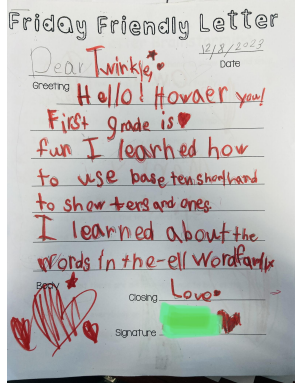 Friday Friendly Letter
12/8/2023
Dear Twinkle,
Date
Greeting
Hello! Howaer you!
First grade is
fun I learned how
to use base ten shorthand
to show tens and ones.
I learned about the
words in the -ell wordfamily
Body
Closing Love
Signature